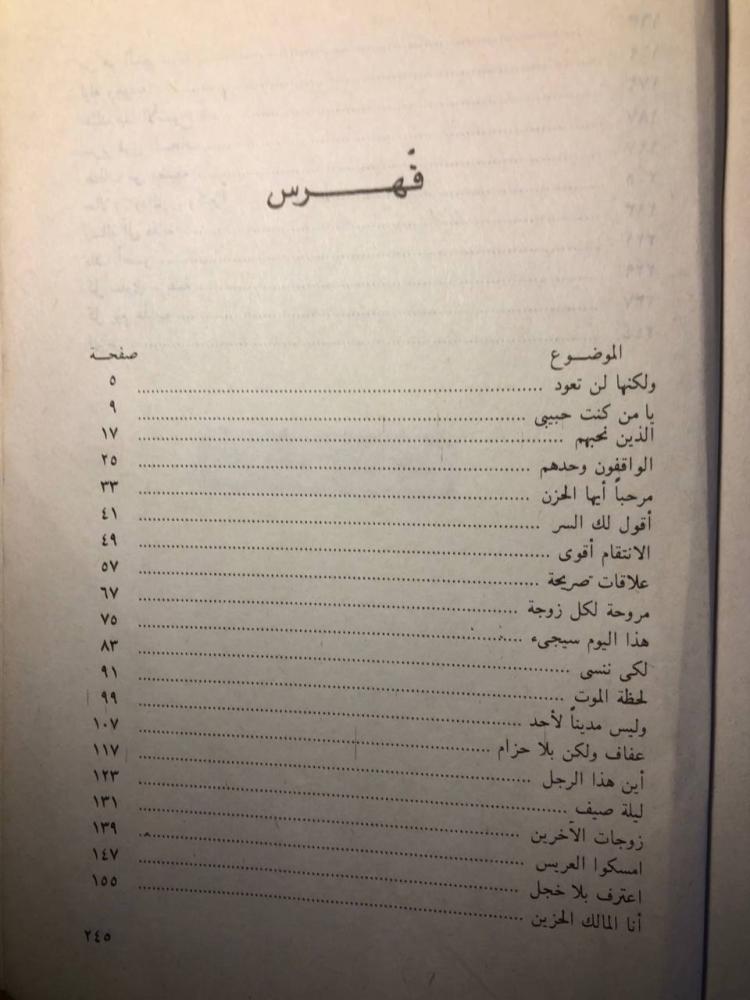 فهرس
الموضوع صفحة
ولكنها لن تعود ٥
يا من كنت حبيبى ٩
الذين نحبهم ١٧
الواقفون وحدهم ٢٥
مرحباً أيها الحزن ٣٣
أقول لك السر ٤١
الانتقام أقوى ٤٩
علاقات صريحة ٥٧
مروحة لكل زوجة ٦٧
هذا اليوم سيجىء ٧٥
لكى ننسى ٨٣
لحظة الموت ٩١
وليس مديناً لأحد ٩٩
عفاف ولكن بلا حزام ١٠٧
أين هذا الرجل ١١٧
ليلة صيف ١٢٣
زوجات الآخرين ١٣١
امسكوا العريس ١٣٩
اعترف بلا خجل ١٤٧
أنا المالك الحزين ١٥٥
٢٤٥